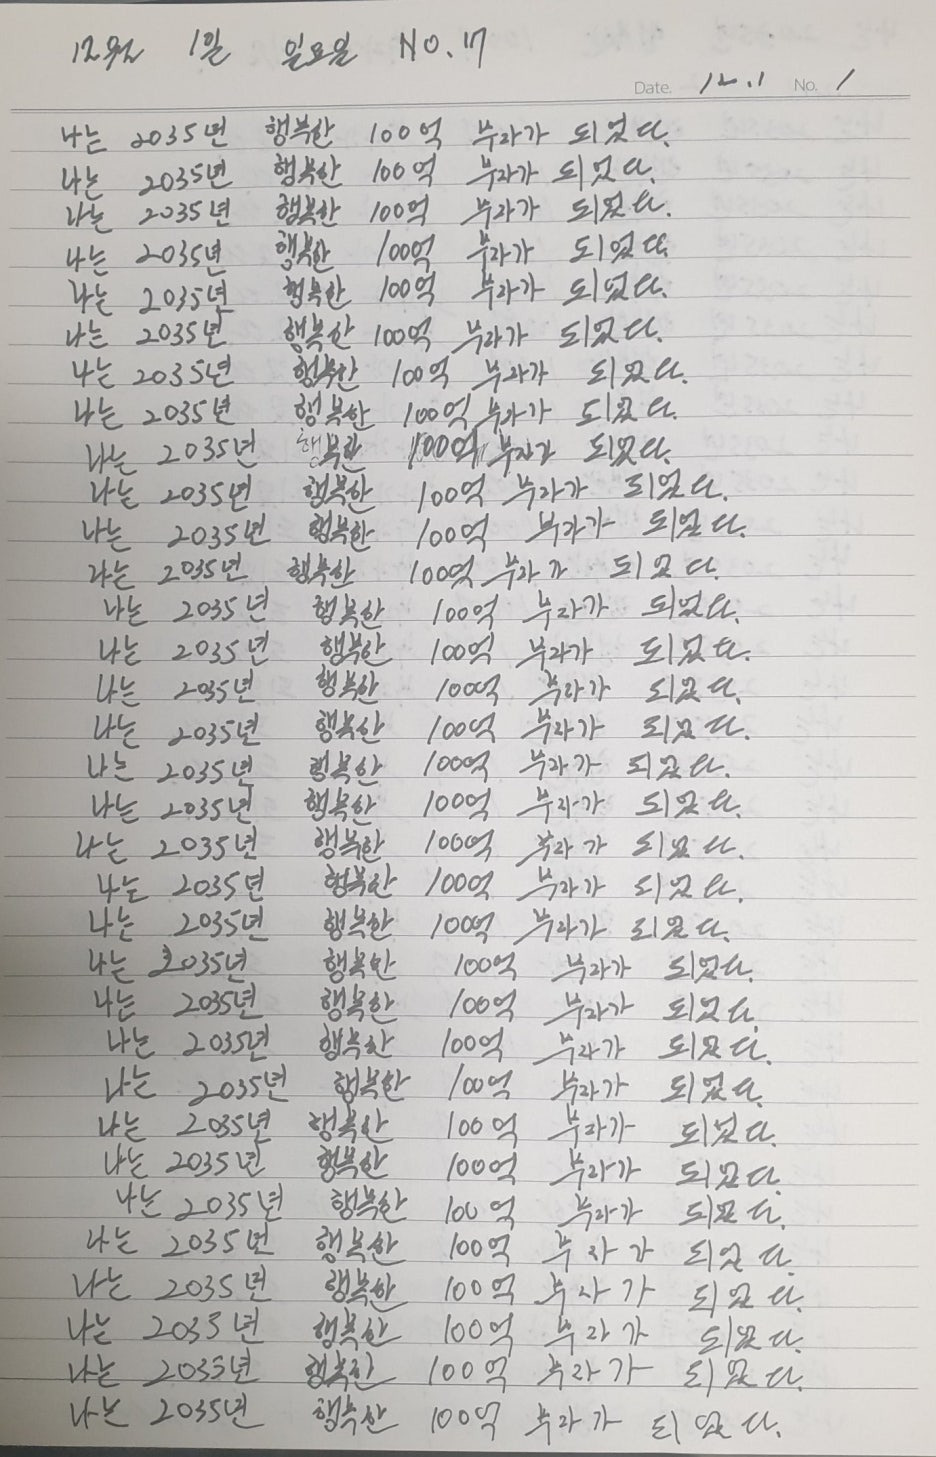 12월 1일 일요일 NO.17
Date. 12.1 No. 1
나는 2035년 행복한 100억 부자가 되었다.
나는 2035년 행복한 100억 부자가 되었다.
나는 2035년 행복한 100억 부자가 되었다.
나는 2035년 행복한 100억 부자가 되었다
나는 2035년 행복한 100억 부자가 되었다.
나는 2035년 행복한 100억 부자가 되었다.
나는 2035년 행복한 100억 부자가 되었다.
나는 2035년 행복한 100억 부자가 되었다.
나는 2035년 행복한 100억 부자가 되었다.
나는 2035년 행복한 100억 부자가 되었다.
나는 2035년 행복한 100억 부자가 되었다.
나는 2035년 행복한 100억 부자가 되었다.
나는 2035년 행복한 100억 부자가 되었다.
나는 2035년 행복한 100억 부자가 되었다.
나는 2035년 행복한 100억 부자가 되었다.
나는 2035년 행복한 100억 부자가 되었다.
나는 2035년 행복한 100억 부자가 되었다.
나는 2035년 행복한 100억 부자가 되었다.
나는 2035년 행복한 100억 부자가 되었다.
나는 2035년 행복한 100억 부자가 되었다.
나는 2035년 행복한 100억 부자가 되었다.
나는 2035년 행복한 100억 부자가 되었다.
나는 2035년 행복한 100억 부자가 되었다.
나는 2035년 행복한 100억 부자가 되었다.
나는 2035년 행복한 100억 부자가 되었다.
나는 2035년 행복한 100억 부자가 되었다.
나는 2035년 행복한 100억 부자가 되었다.
나는 2035년 행복한 100억 부자가 되었다.
나는 2035년 행복한 100억 부자가 되었다.
나는 2035년 행복한 100억 부자가 되었다.
나는 2035년 행복한 100억 부자가 되었다.
나는 2035년 행복한 100억 부자가 되었다.
나는 2035년 행복한 100억 부자가 되었다.